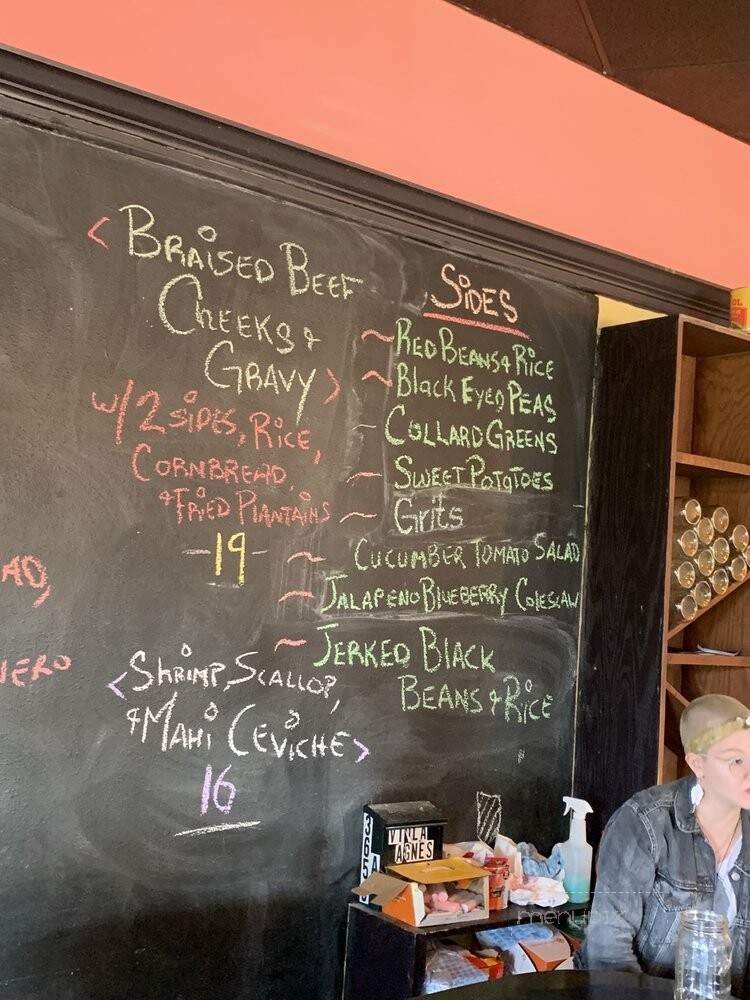 < BRAISED BEEF
CHEEKS &
GRAVY >
w/ 2 SIDES, RICE,
CORNBREAD,
& FRIED PLANTAINS
- 19 -
<SHRIMP, SCALLOP,
& MAHI CEVICHE>
16
SIDES
~ RED BEANS & RICE
~ BLACK EYED PEAS
- COLLARD GREENS
~ SWEET POTATOES
~ Grits
~ CUCUMBER TOMATO SALAD
~ JALAPENO BLUEBERRY COLESLAW
~ JERKED BLACK
BEANS & RICE
VILLA
AGNES
menupix